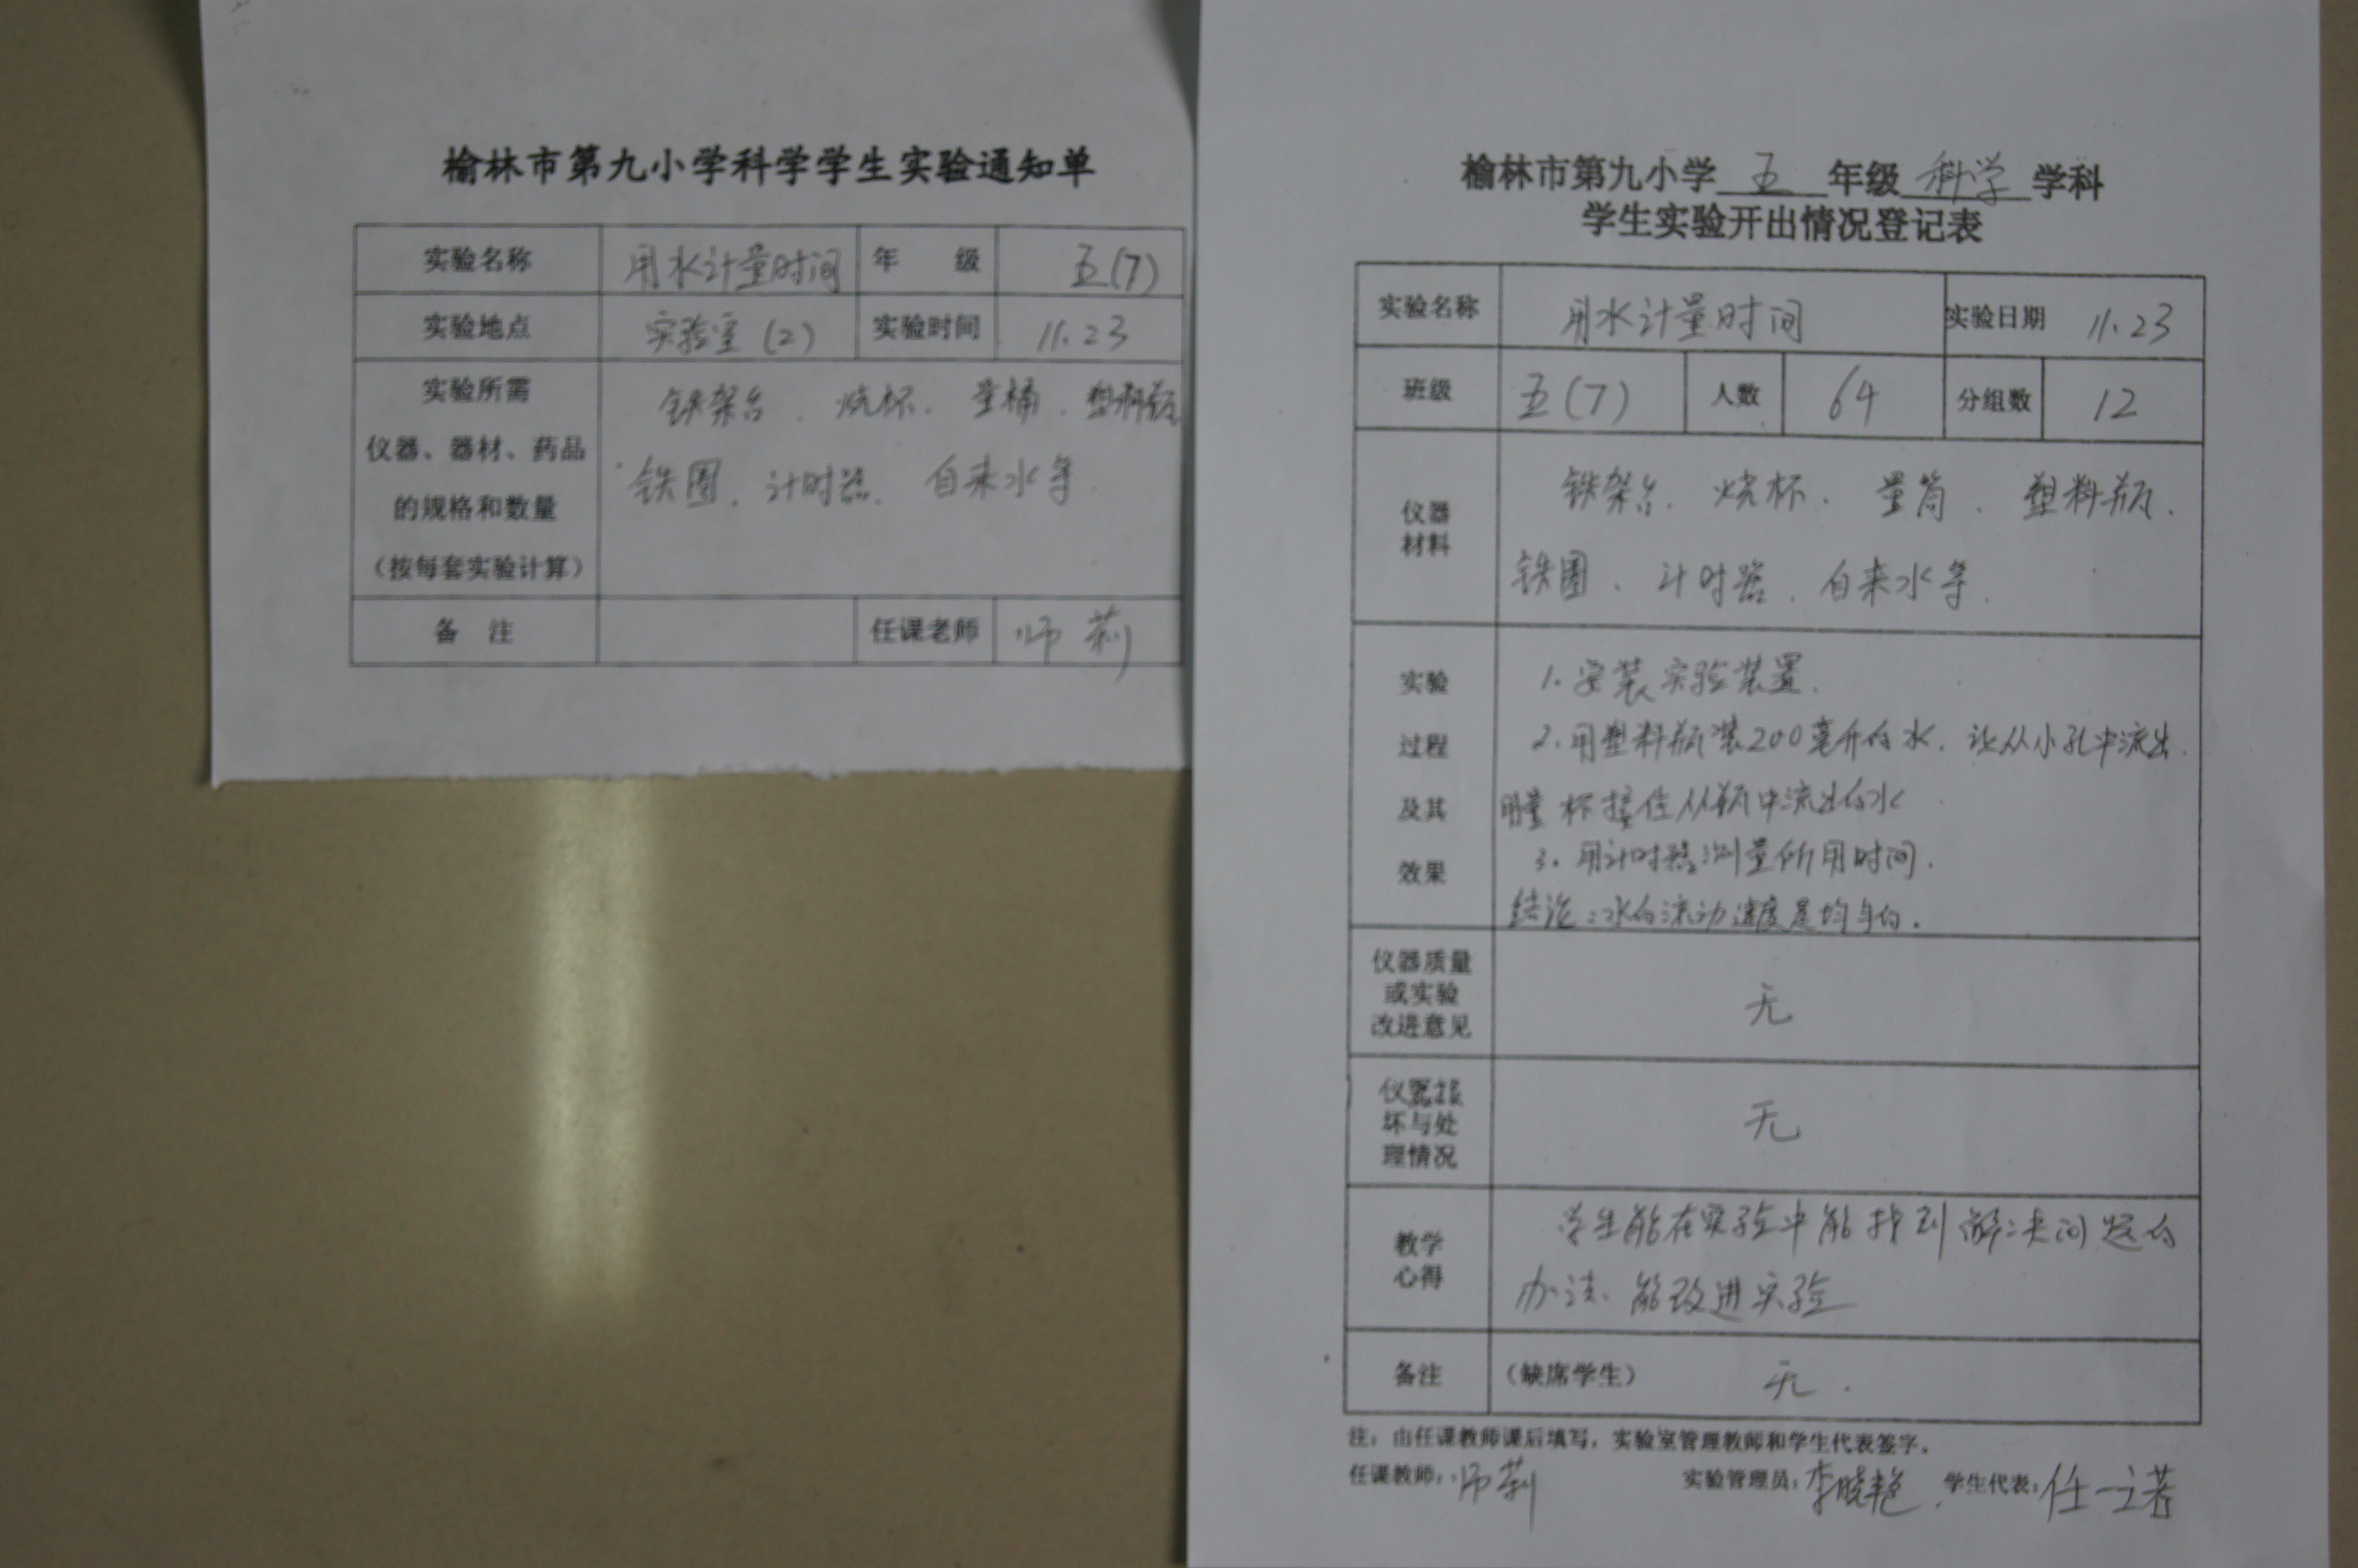 榆林市第九小学科学学生实验通知单
实验名称 用水计量时间 年 级 五(7)
实验地点 实验室(2) 实验时间 11.23
实验所需
仪器、器材、药品
的规格和数量
(按每套实验计算)
铁架台、烧杯、量桶、塑料瓶
铁圈、计时器、自来水等.
备 注 任课老师 师莉
榆林市第九小学 五 年级 科学 学科
学生实验开出情况登记表
实验名称 用水计量时间 实验日期 11.23
班级 五(7) 人数 64 分组数 12
仪器
材料
铁架台、烧杯、量筒、塑料瓶、
铁圈、计时器、自来水等.
实验
过程
及其
效果
1.安装实验装置.
2.用塑料瓶装200毫升的水.让从小孔中流出.
用量杯接住从瓶中流出的水
3.用计时器测量所用时间.
结论:水的流动速度是均匀的.
仪器质量
或实验
改进意见
无
仪器损
坏与处
理情况
无
教学
心得
学生能在实验中能找到解决问题的
办法、能改进实验
备注 (缺席学生) 无.
注:由任课教师课后填写,实验室管理教师和学生代表签字。
任课教师:师莉 实验管理员:李晓艳 学生代表:任一诺